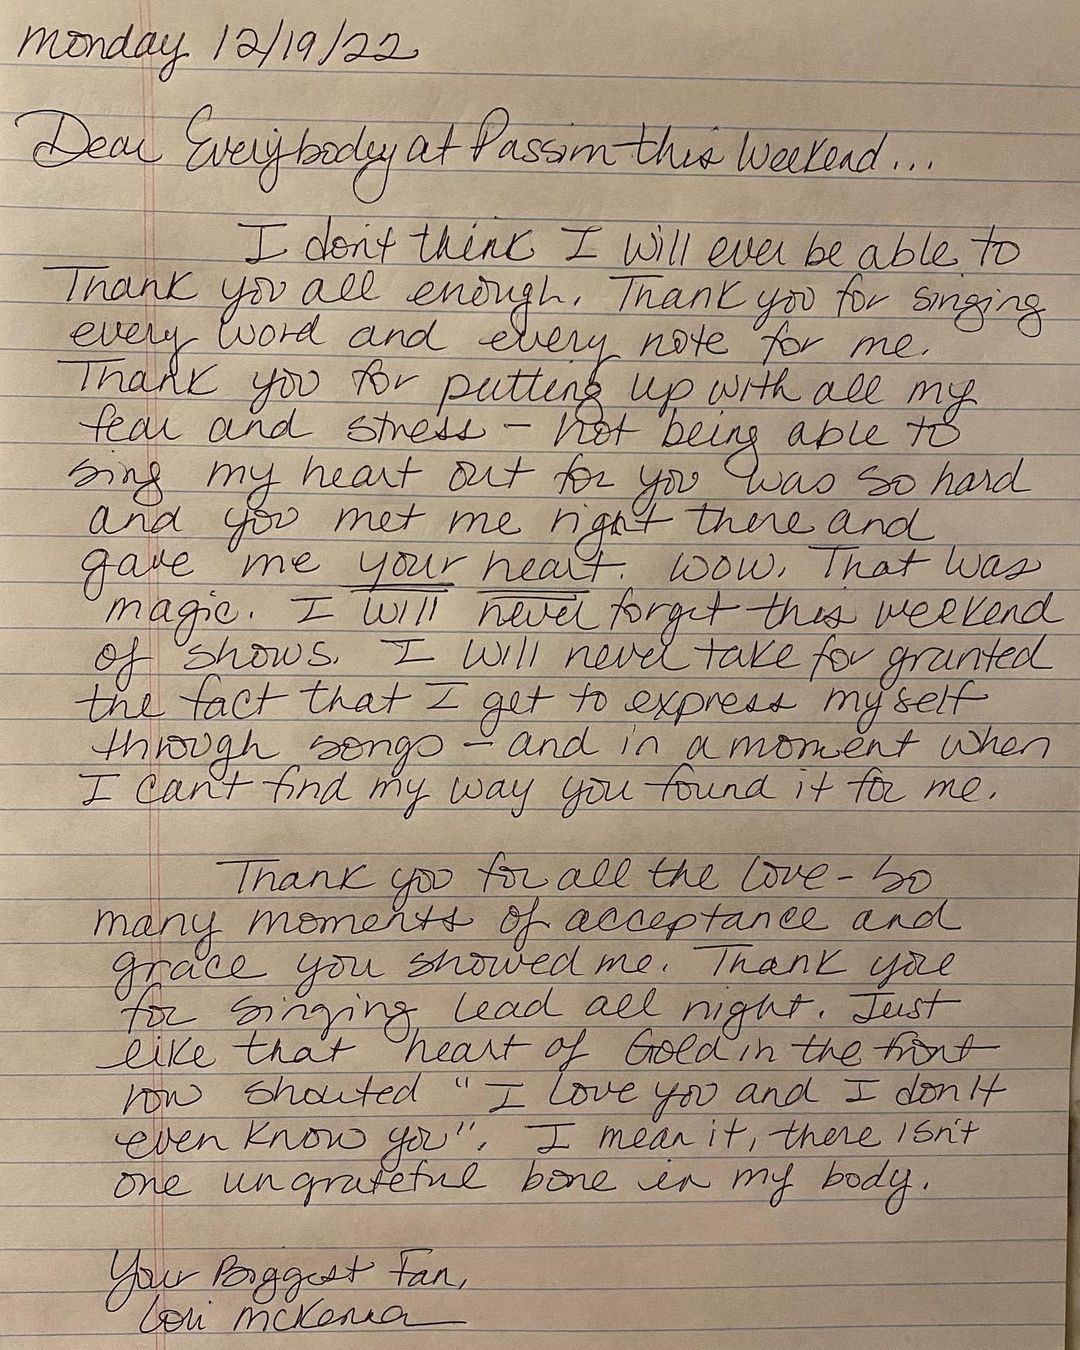 Monday 12/19/22
Dear Everybody at Passim this weekend...
I don't think I will ever be able to
Thank you all enough. Thank you for singing
every word and every note for me.
Thank you for putting up with all my
fear and stress - not being able to
sing my heart out for you was so hard
and you met me right there and
gave me your heart. Wow. That was
magic. I will never forget this weekend
of shows. I will never take for granted
the fact that I get to express myself
through songs - and in a moment when
I can't find my way you found it for me.
Thank you for all the love - so
many moments of acceptance and
grace you showed me. Thank you
for singing lead all night. Just
like that heart of Gold in the front
row shouted "I love you and I don't
even know you". I mean it, there isn't
one ungrateful bone in my body.
Your Biggest Fan,
Lori McKenna